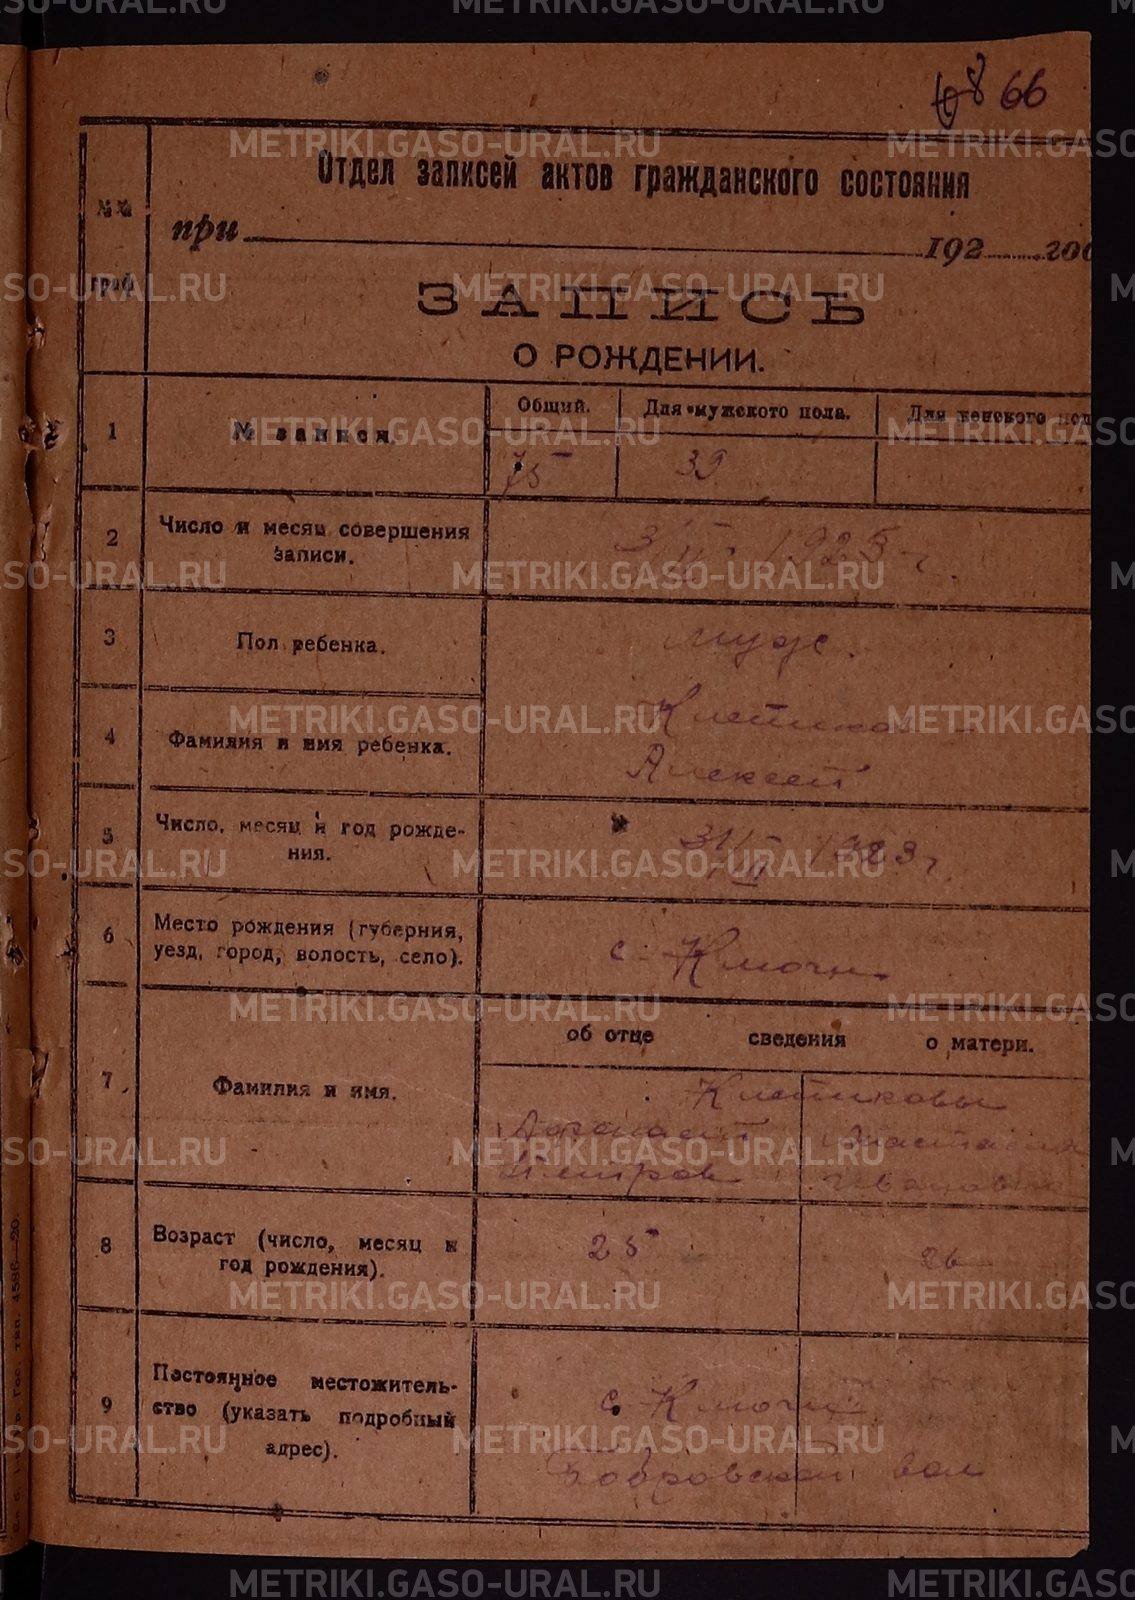 68 66
Отдел записей актов гражданского состояния
№№
граф
при 192 год
ЗАПИСЬ
О РОЖДЕНИИ.
1
№ записи.
Общий.
Для мужского пола.
Для женского пол
75
39
2
Число и месяц совершения
записи.
1923 г.
3
Пол ребенка.
муж.
4
Фамилия и имя ребенка.
Клетиков
Алексей
5
Число, месяц и год рожде-
ния.
31/III 1923 г.
6
Место рождения (губерния,
уезд, город, волость, село).
с. Ключи
об отце сведения о матери.
7
Фамилия и имя.
Клетиковы
Афанасий Анастасия
Петров Ивановна
8
Возраст (число, месяц и
год рождения).
25
26
9
Постоянное местожитель-
ство (указать подробный
адрес).
с. Ключи
Бобровской вол
Гос. тип. 4586—20.
METRIKI.GASO-URAL.RU